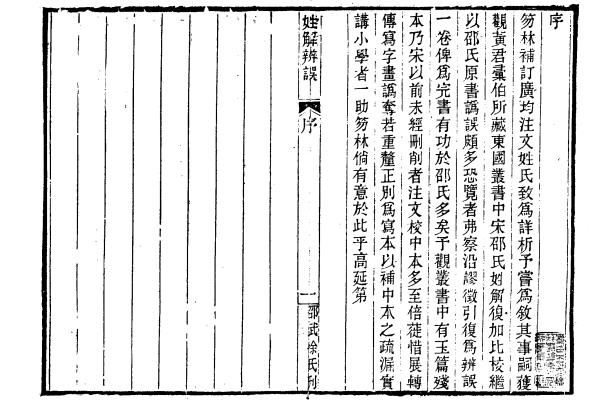 序
笏林補訂廣均注文姓氏致爲詳析予嘗爲敘其事嗣獲
觀黃君彙伯所藏東國叢書中宋邵氏姓解復加比校繼
以邵氏原書譌誤頗多恐覽者弗察沿謬徵引復爲辨誤
一卷俾爲完書有功於邵氏多矣予觀叢書中有玉篇殘
本乃宋以前未經刪削者注文校中本多至倍蓰惜展轉
傳寫字畫譌奪若重釐正別爲寫本以補中本之疏漏實
講小學者一助笏林倘有意於此乎高延第
姓解辨誤
序
一
邵武徐氏刊